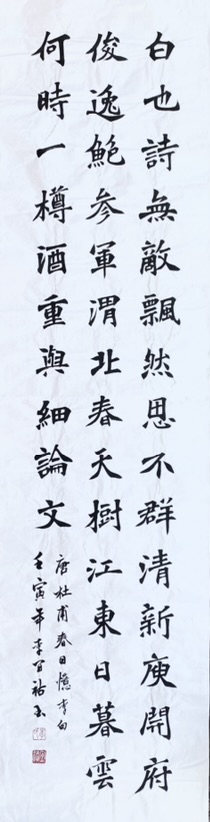 白也詩無敵飄然思不群清新庾開府
俊逸鮑参軍渭北春天樹江東日暮雲
何時一樽酒重與細論文
唐杜甫春日憶李白
壬寅年李